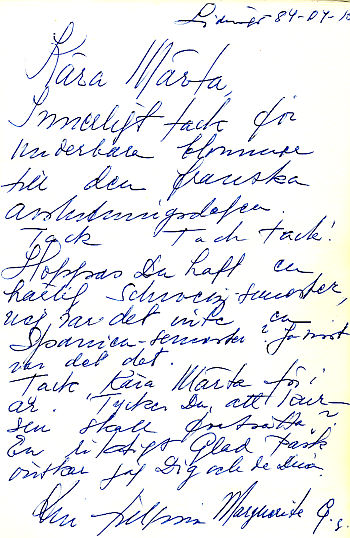 Lidingö 84-04-1
Kära Märta,
Innerligt tack för
underbara blommor
till den franska
avslutningsdagen.
Tack Tack tack!
Hoppas Du haft en
härlig Schweiz-semester,
nej var det inte en
Spanien-semester? Jo visst
var det det.
Tack kära Märta för i
år. Tycker Du att kur-
sen skall fortsätta?
En riktigt Glad Påsk
önskar jag Dig och de Dina.
Marguerite G.